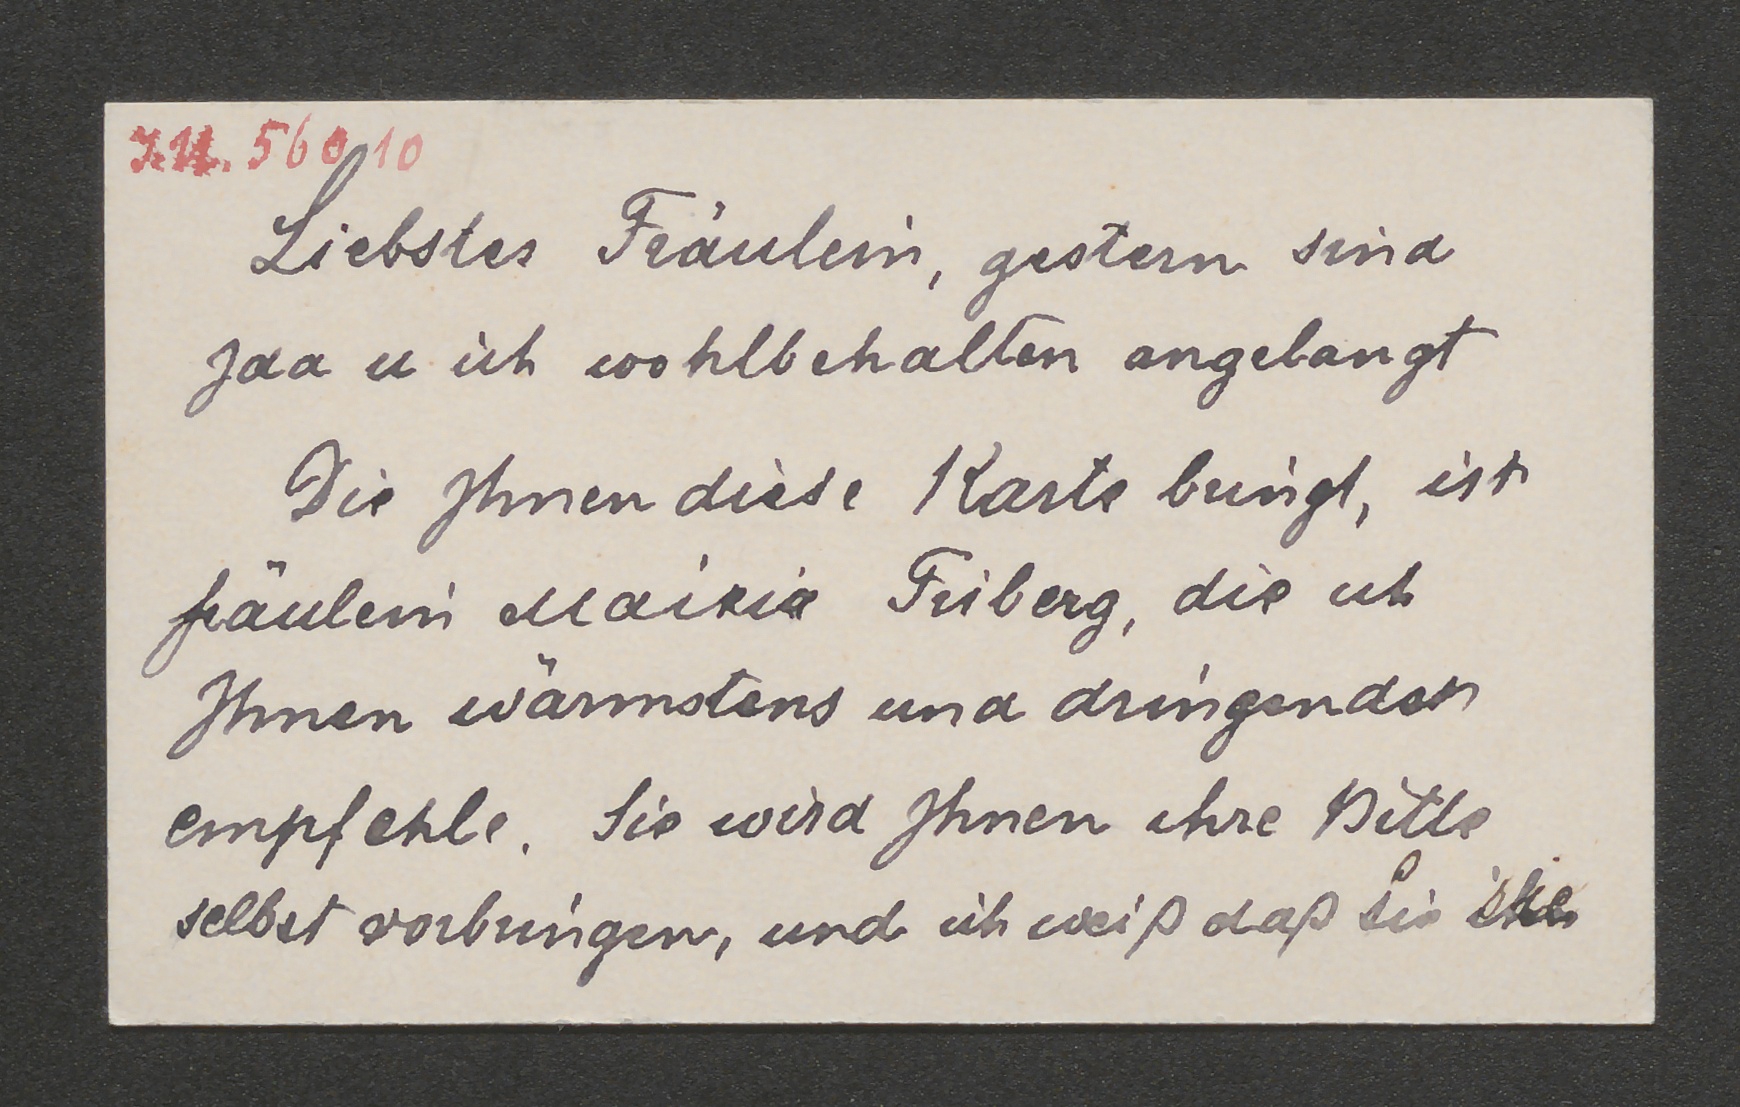 I.N. 56010
Liebstes Fräulein, gestern sind
Ida u ich wohlbehalten angelangt
Die Ihnen diese Karte bringt, ist
fräulein Friberg, die ich
Ihnen wärmstens und dringendst
empfehle. Sie wird Ihnen ihre Bitte
selbst vorbringen, und ich weiß daß Sie